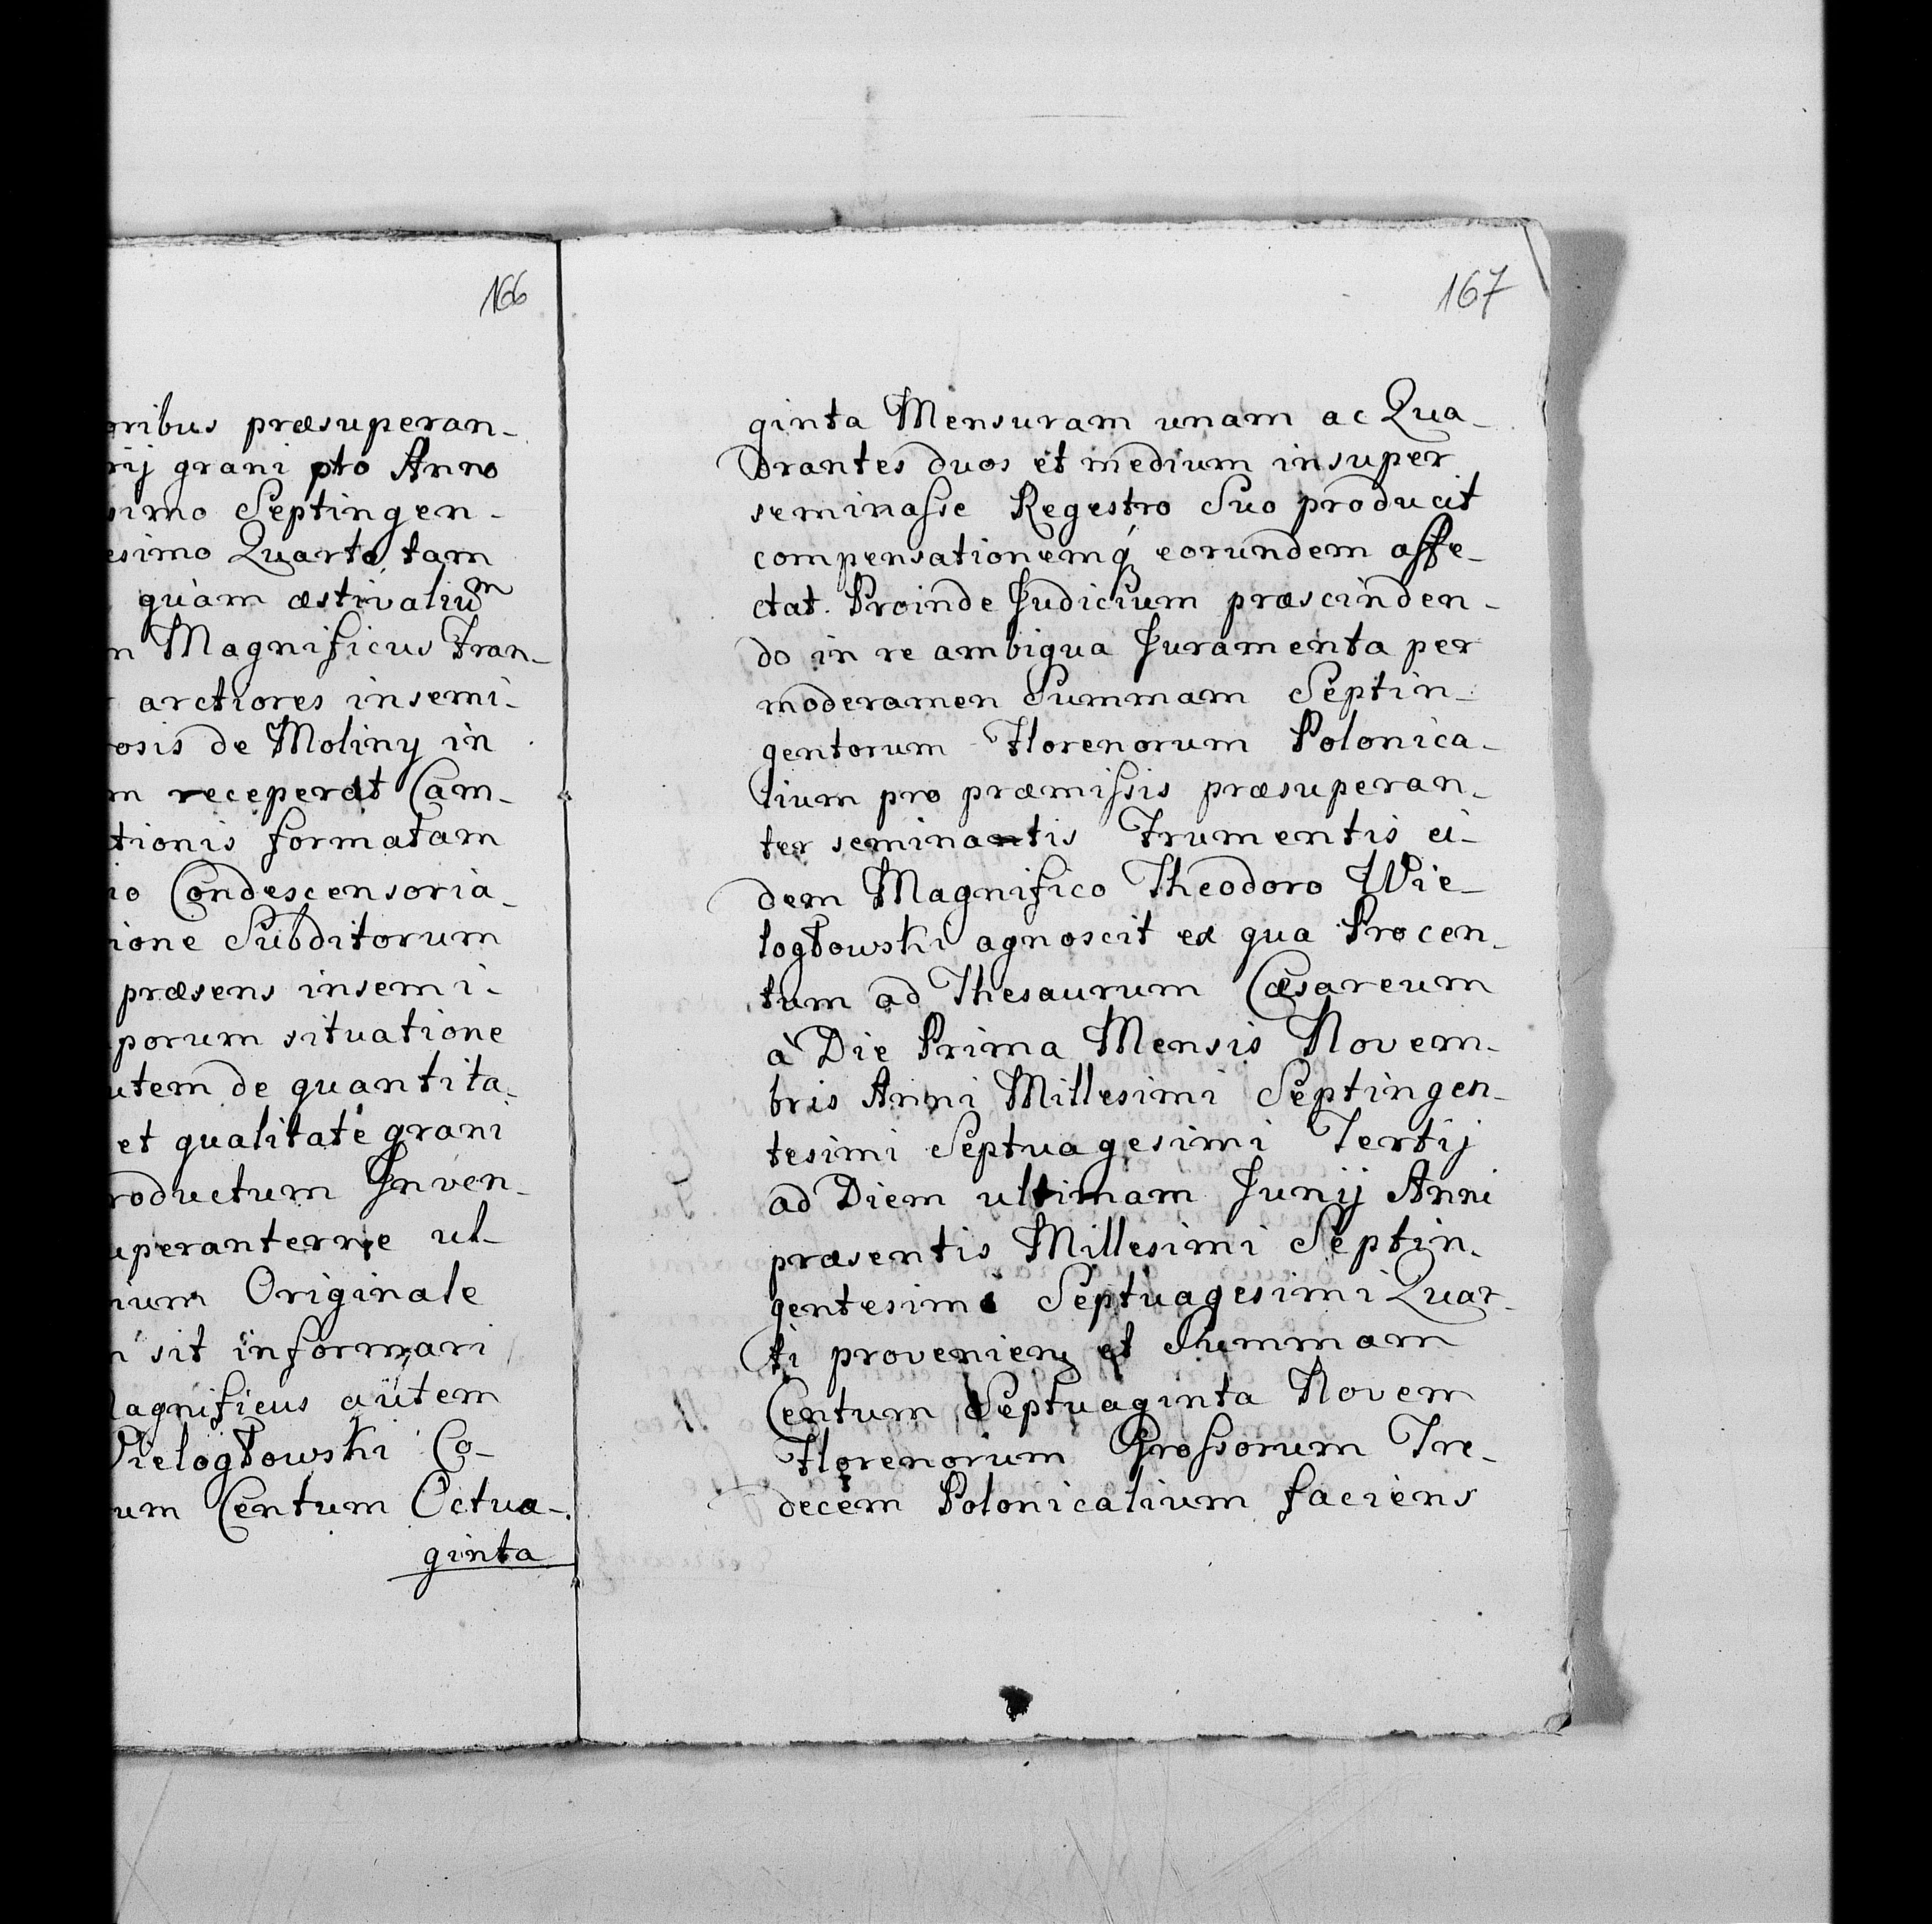 166
oribus præsuperan-
rij grani pro Anno
simo Septingen-
esimo Quarto tam
quàm æstivalium
m Magnificus Fran-
arctiores insemi-
rosis de Moliny in
m receperat Cam-
tionis formatam
io Condescensoria-
ione Subditorum
præsens insemi-
porum situatione
utem de quantita-
et qualitate grani
roductum Inven-
uperanterne ul-
nium Originale
n sit informari
Magnificus autem
Wielogłowski Co-
um Centum Octua-
ginta
167
ginta Mensuram unam ac Qua-
drantes duos et medium insuper
seminasse Regestro Suo producit
compensationemq́ eorundem affe-
ctat. Proinde Judicium præscinden-
do in re ambigua Juramenta per
moderamen Summam Septin-
gentorum Florenorum Polonica-
lium pro præmissis præsuperan-
ter seminatis Frumentis ei-
dem Magnifico Theodoro Wie-
logłowski agnoscit ex qua Procen-
tum ad Thesaurum Cæsareum
à Die Prima Mensis Novem-
bris Anni Millesimi Septingen-
tesimi Septuagesimi Tertij
ad Diem ultimam Junij Anni
præsentis Millesimi Septin-
gentesimi Septuagesimi Quar-
ti provenien et Summam
Centum Septuaginta Novem
Florenorum Grossorum Tre-
decem Polonicalium faciens